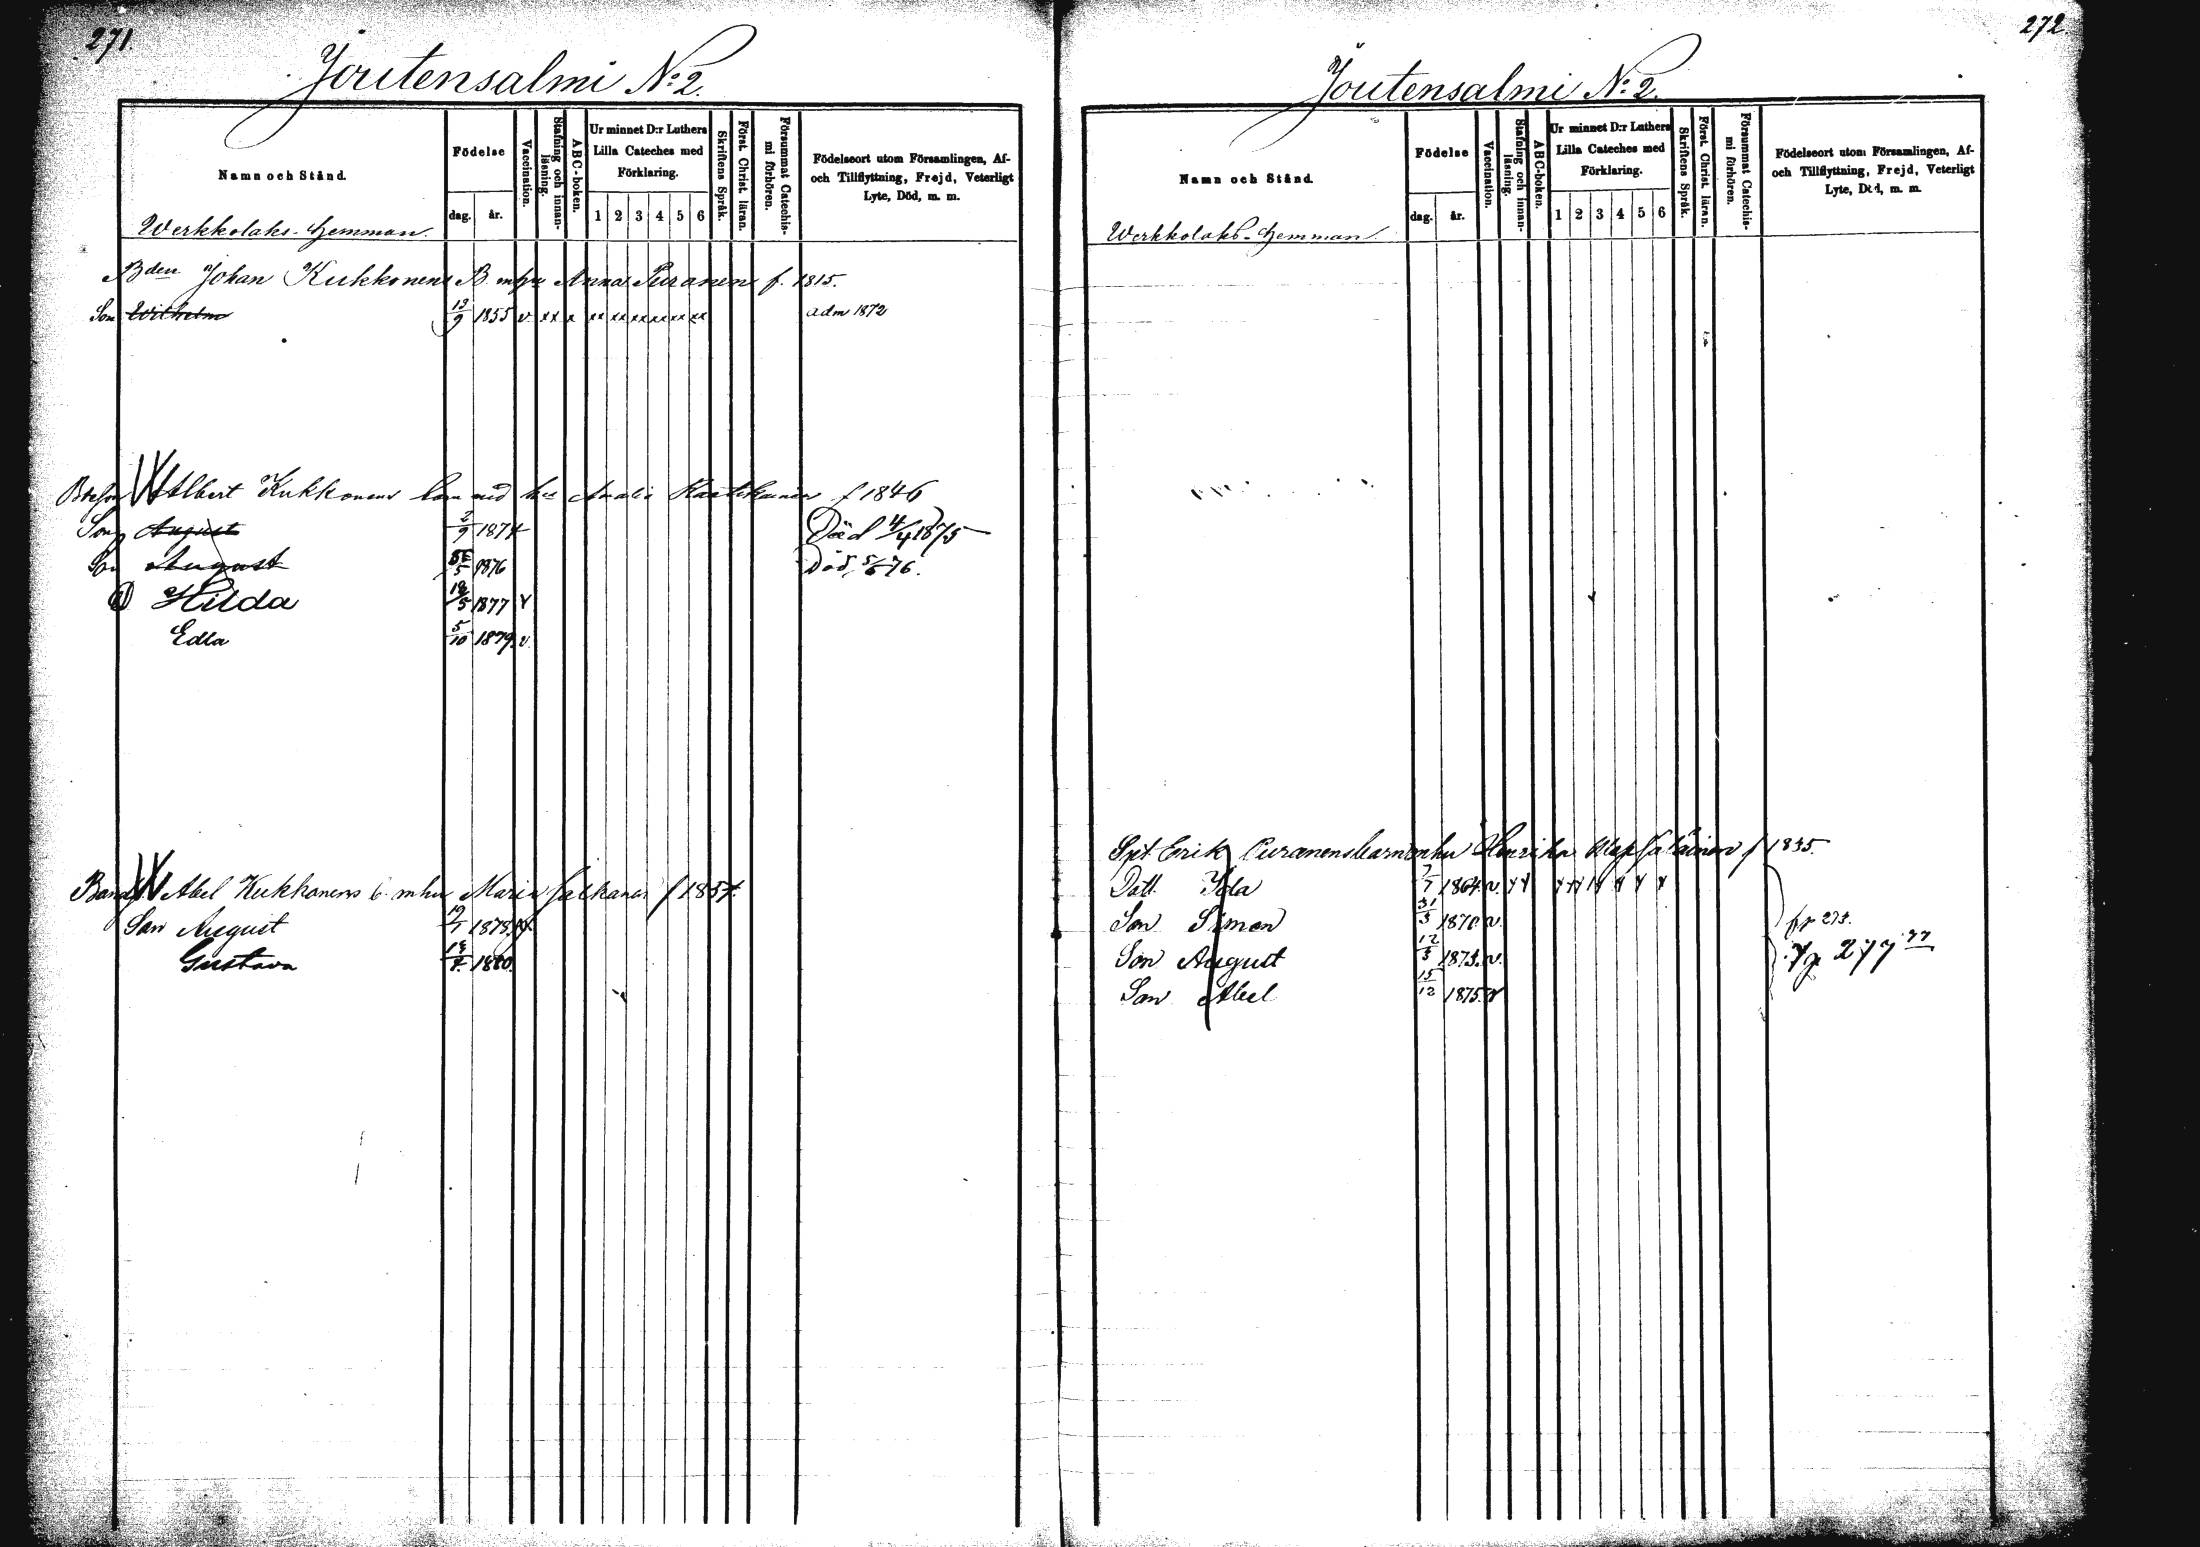 271.
Joutensalmi No: 2.
Namn och Stånd.
Födelse
dag. år.
Vaccination.
Stafning och innanläsning.
ABC-boken.
Ur minnet D:r Luthers Lilla Cateches med Förklaring.
1 2 3 4 5 6
Skriftens Språk.
Först. Christ. läran.
Försummat Catechismi förhören.
Födelseort utom Församlingen, Af-
och Tillflyttning, Frejd, Veterligt
Lyte, Död, m. m.
Werkkolaks-hemman.
Bden Johan Kukkonens B. m hu Anna Puranen f. 1815.
Son Wilhelm 13/9 1855 v xx x xx xx xx xx xx xx adm 1872
Albert Kukkonens barn med Amalia f 1846
Son August 2/9 1874 Död 4/4 1875
Son August 5 1876 Död 5/6 76.
D Hilda 18/5 1877 v
Edla 5/10 1879. v.
Abel Kukkonens b. m hu Maria Jalkanen f 1854.
Son August 19/1 1878.
Gustava 18/4 1880.
272.
Joutensalmi No: 2.
Namn och Stånd.
Födelse
dag. år.
Vaccination.
Stafning och innanläsning.
ABC-boken.
Ur minnet D:r Luthers Lilla Cateches med Förklaring.
1 2 3 4 5 6
Skriftens Språk.
Först. Christ. läran.
Försummat Catechismi förhören.
Födelseort utom Församlingen, Af-
och Tillflyttning, Frejd, Veterligt
Lyte, Död, m. m.
Werkkolaks-hemman.
Erik Puranens barn m hu Henrika f 1835.
Dott. Ida 7/7 1864. v.
Son Simon 31/3 1870. v.
Son August 12/3 1873. v.
Son Abel 15/12 1875. v
fr p 273.
277 77